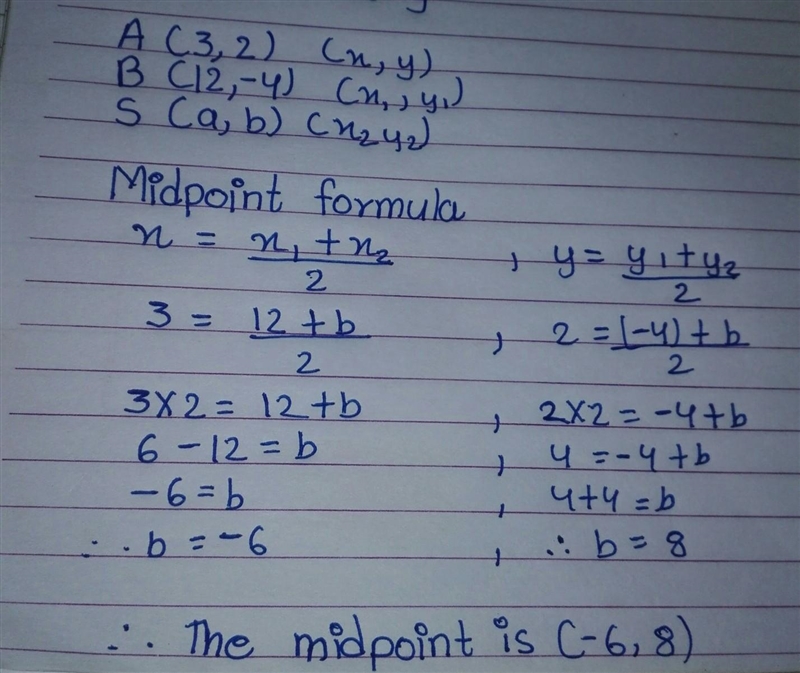 A (3,2) (x, y)
B (12,-4) (x₁, y₁)
S (a, b) (x₂ y₂)
Midpoint formula
x = x₁ + x₂ / 2 , y = y₁ + y₂ / 2
3 = 12 + b / 2 , 2 = (-4) + b / 2
3×2 = 12 + b , 2×2 = -4 + b
6 - 12 = b , 4 = -4 + b
-6 = b , 4+4 = b
∴ b = -6 , ∴ b = 8
∴ The midpoint is (-6, 8)